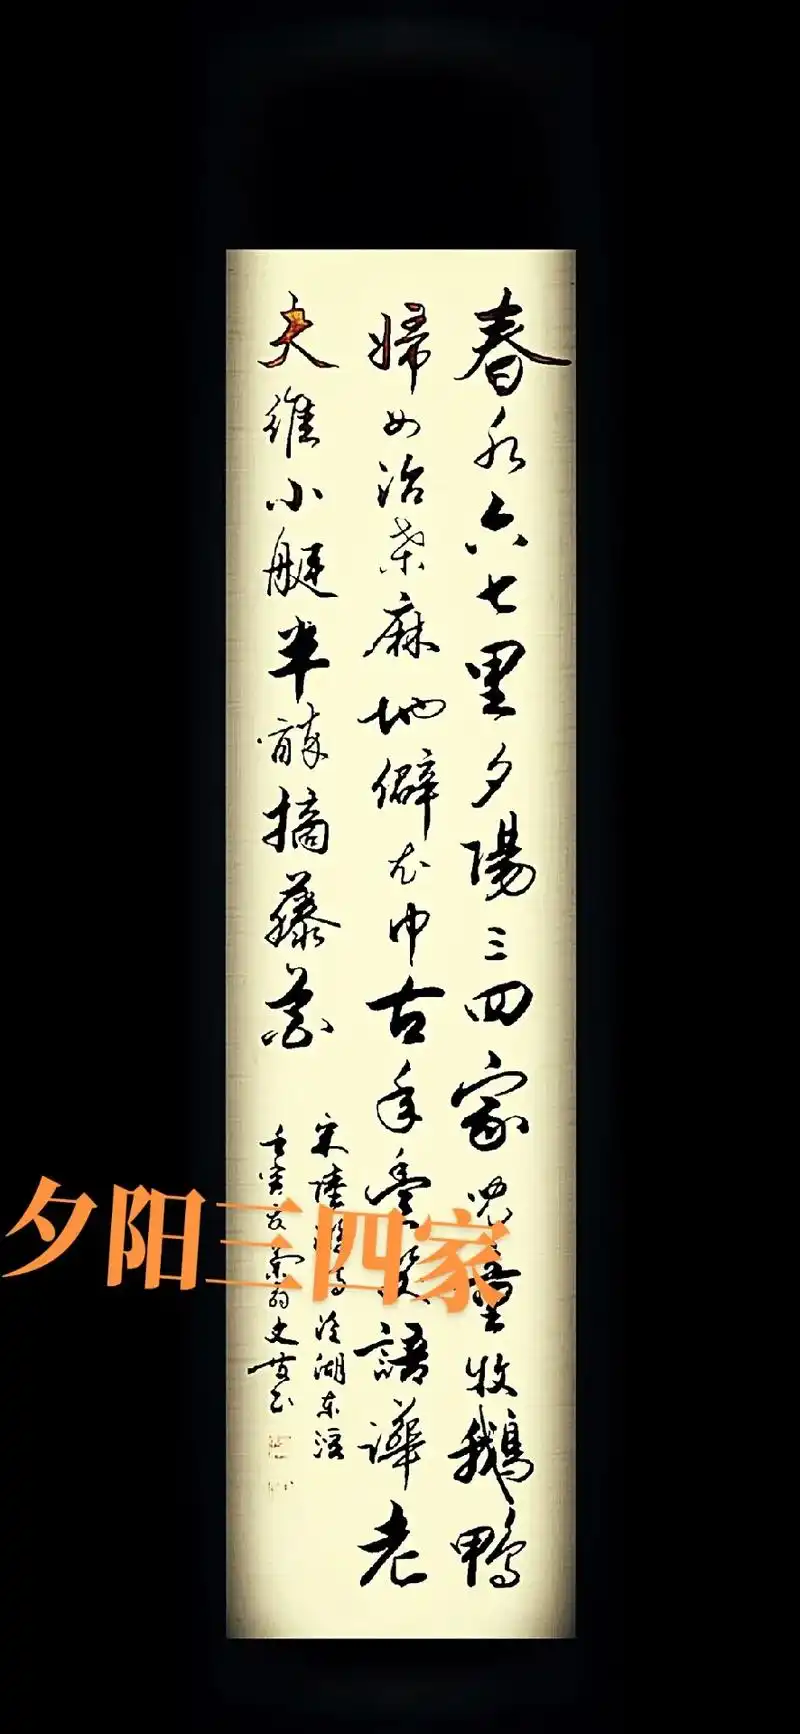 春水六七里夕陽三四家児童牧鵝鴨
婦女治桒麻地僻衣巾古年豐笑語譁老
夫維小艇半醉摘藤花
宋陸游詩泛湖东泾
壬寅
夕阳三四家